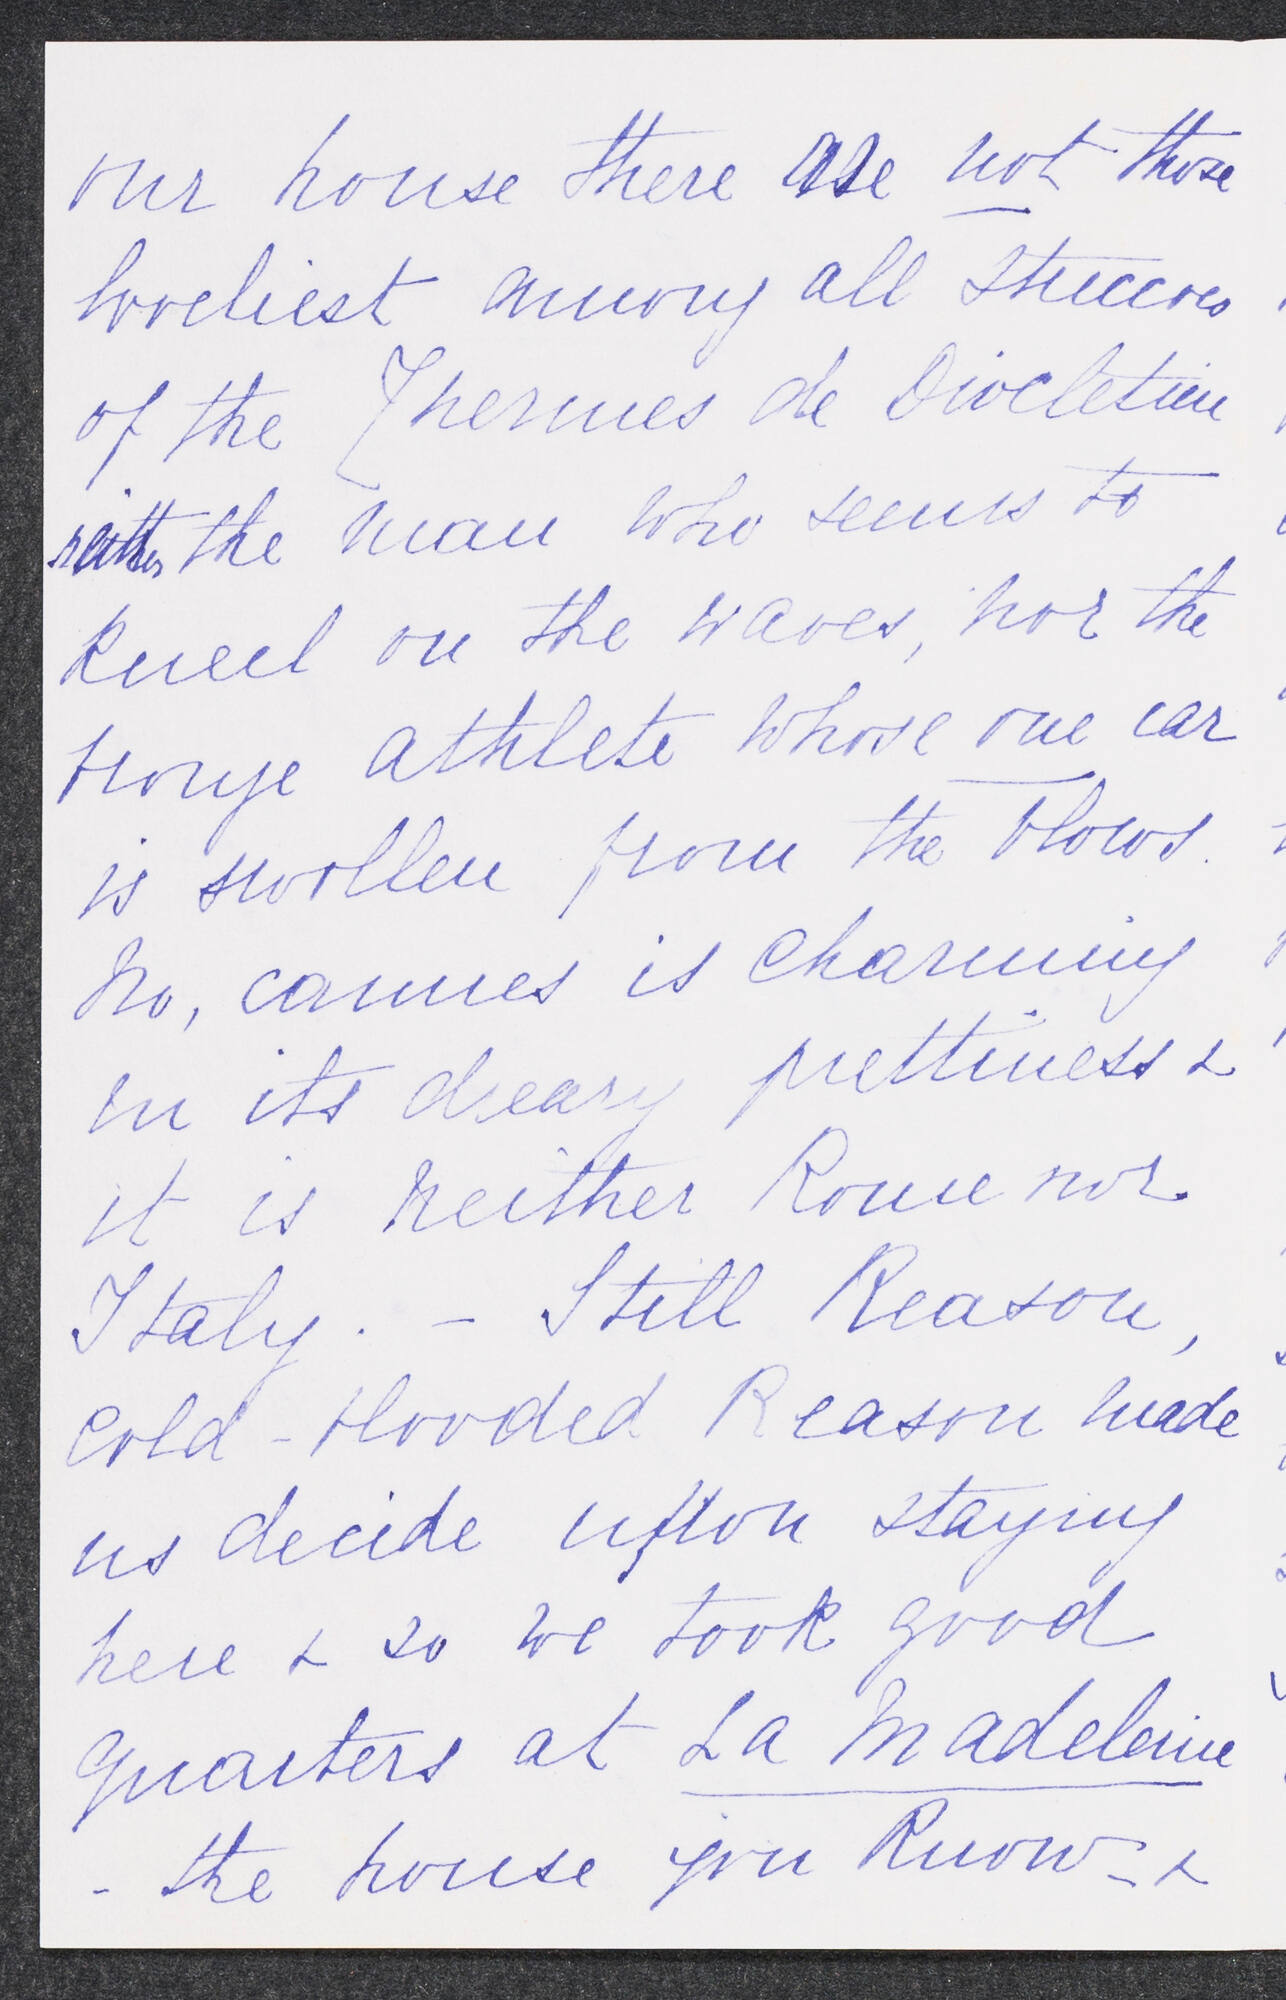 our house there are not those
loveliest among all stuccoes
of the Thermes de Diocletien
neither the man who seems to
kneel on the waves, nor the
bronze athlete whose one ear
is swollen from the blows.
No, cannes is charming
in its dreary prettiness &
it is neither Rome nor
Italy. - Still Reason,
cold-blooded Reason made
us decide upon staying
here & so we took good
quarters at La Madeleine
- the house you know - &